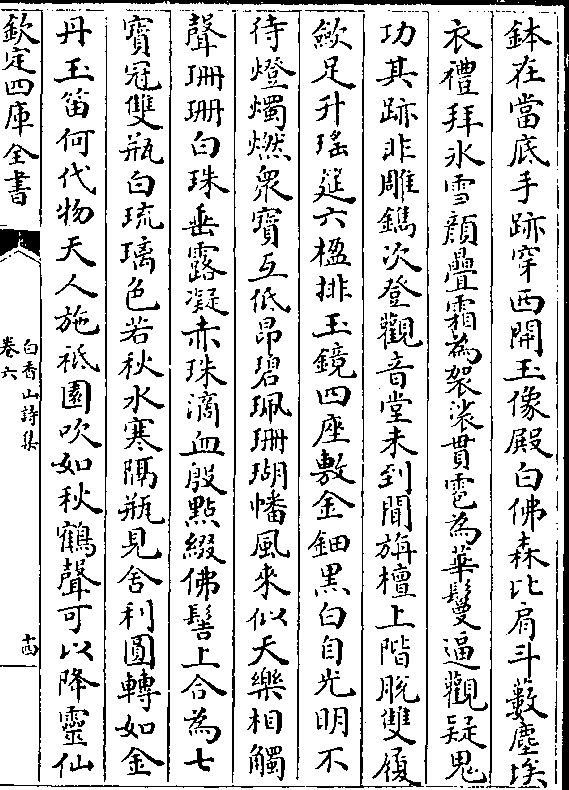 鉢在當底手跡穿西開玉像殿白佛森比肩斗藪塵埃
衣禮拜氷雪顔疊霜為袈裟貫雹為華鬘逼觀疑鬼
功其跡非雕鐫次登觀音堂未到聞旃檀上階脱雙履
歛足升瑤筵六楹排玉鏡四座敷金鈿黒白自光明不
待燈燭燃衆寳互低昻碧珮珊瑚幡風來似天樂相觸
聲珊珊白珠垂露凝赤珠滴血殷㸃綴佛髻上合為七
寳冠雙瓶白琉璃色若秋水寒隔瓶見舍利圓轉如金
丹玉笛何代物天人施祗園吹如秋鶴聲可以降靈仙
欽定四庫全書
白香山詩集
卷六
十四